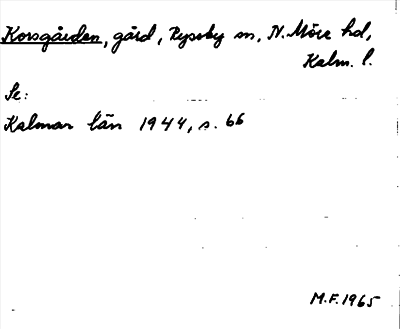 Korsgården, gård, Ryssby sn, N. Möre hd,
Kalm. l.
Se:
Kalmar län 1944, s. 66
M.F. 1965